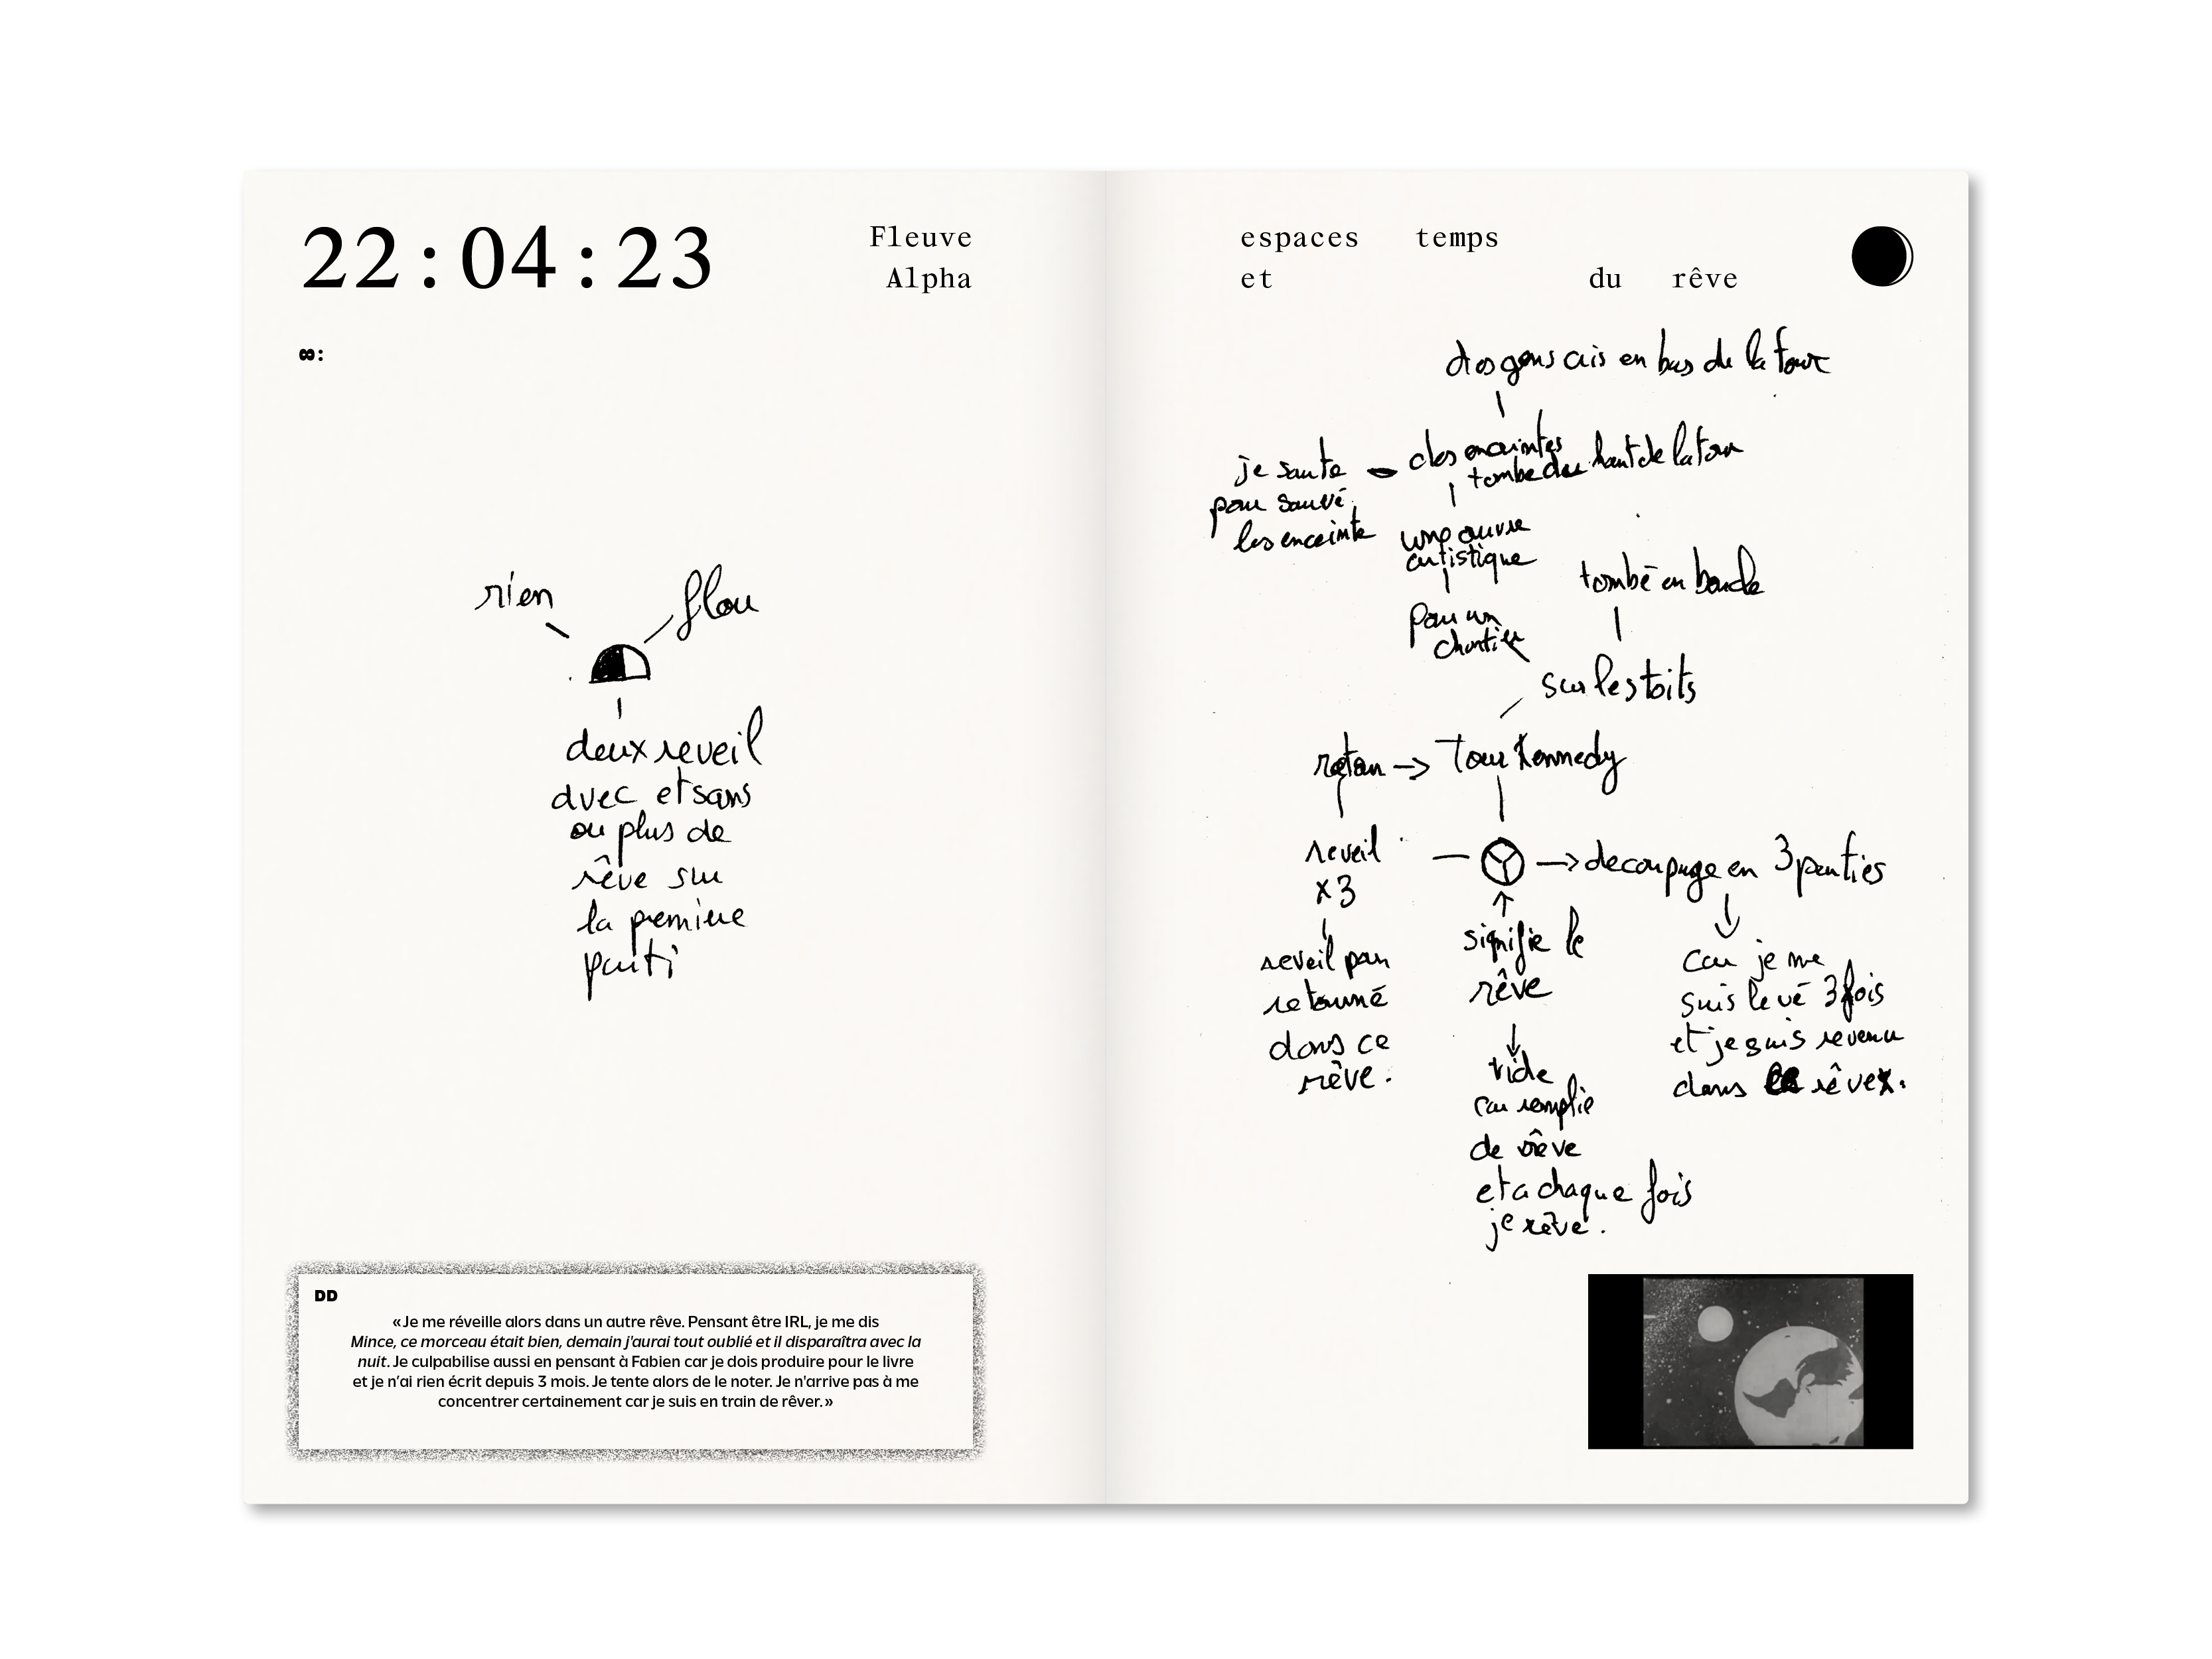 22:04:23
Fleuve
Alpha
8:
rien
flou
deux reveil
avec et sans
ou plus de
rêve sur
la premiere
parti
DD
«Je me réveille alors dans un autre rêve. Pensant être IRL, je me dis
Mince, ce morceau était bien, demain j'aurai tout oublié et il disparaîtra avec la
nuit. Je culpabilise aussi en pensant à Fabien car je dois produire pour le livre
et je n'ai rien écrit depuis 3 mois. Je tente alors de le noter. Je n'arrive pas à me
concentrer certainement car je suis en train de rêver.»
espaces temps
et du rêve
des gens en bas de la tour
des enceintes
tombe du haut de la tour
je saute
pour sauvé
les enceinte
une œuvre
artistique
pour un
chantier
tombé en boucle
sur les toits
Tour Kennedy
reveil
x3
reveil par
retourné
dans ce
rêve.
signifie le
rêve
vide
car remplie
de rêve
et a chaque fois
je rêve.
decoupage en 3 parties
car je me
suis levé 3 fois
et je suis revenu
dans rêve